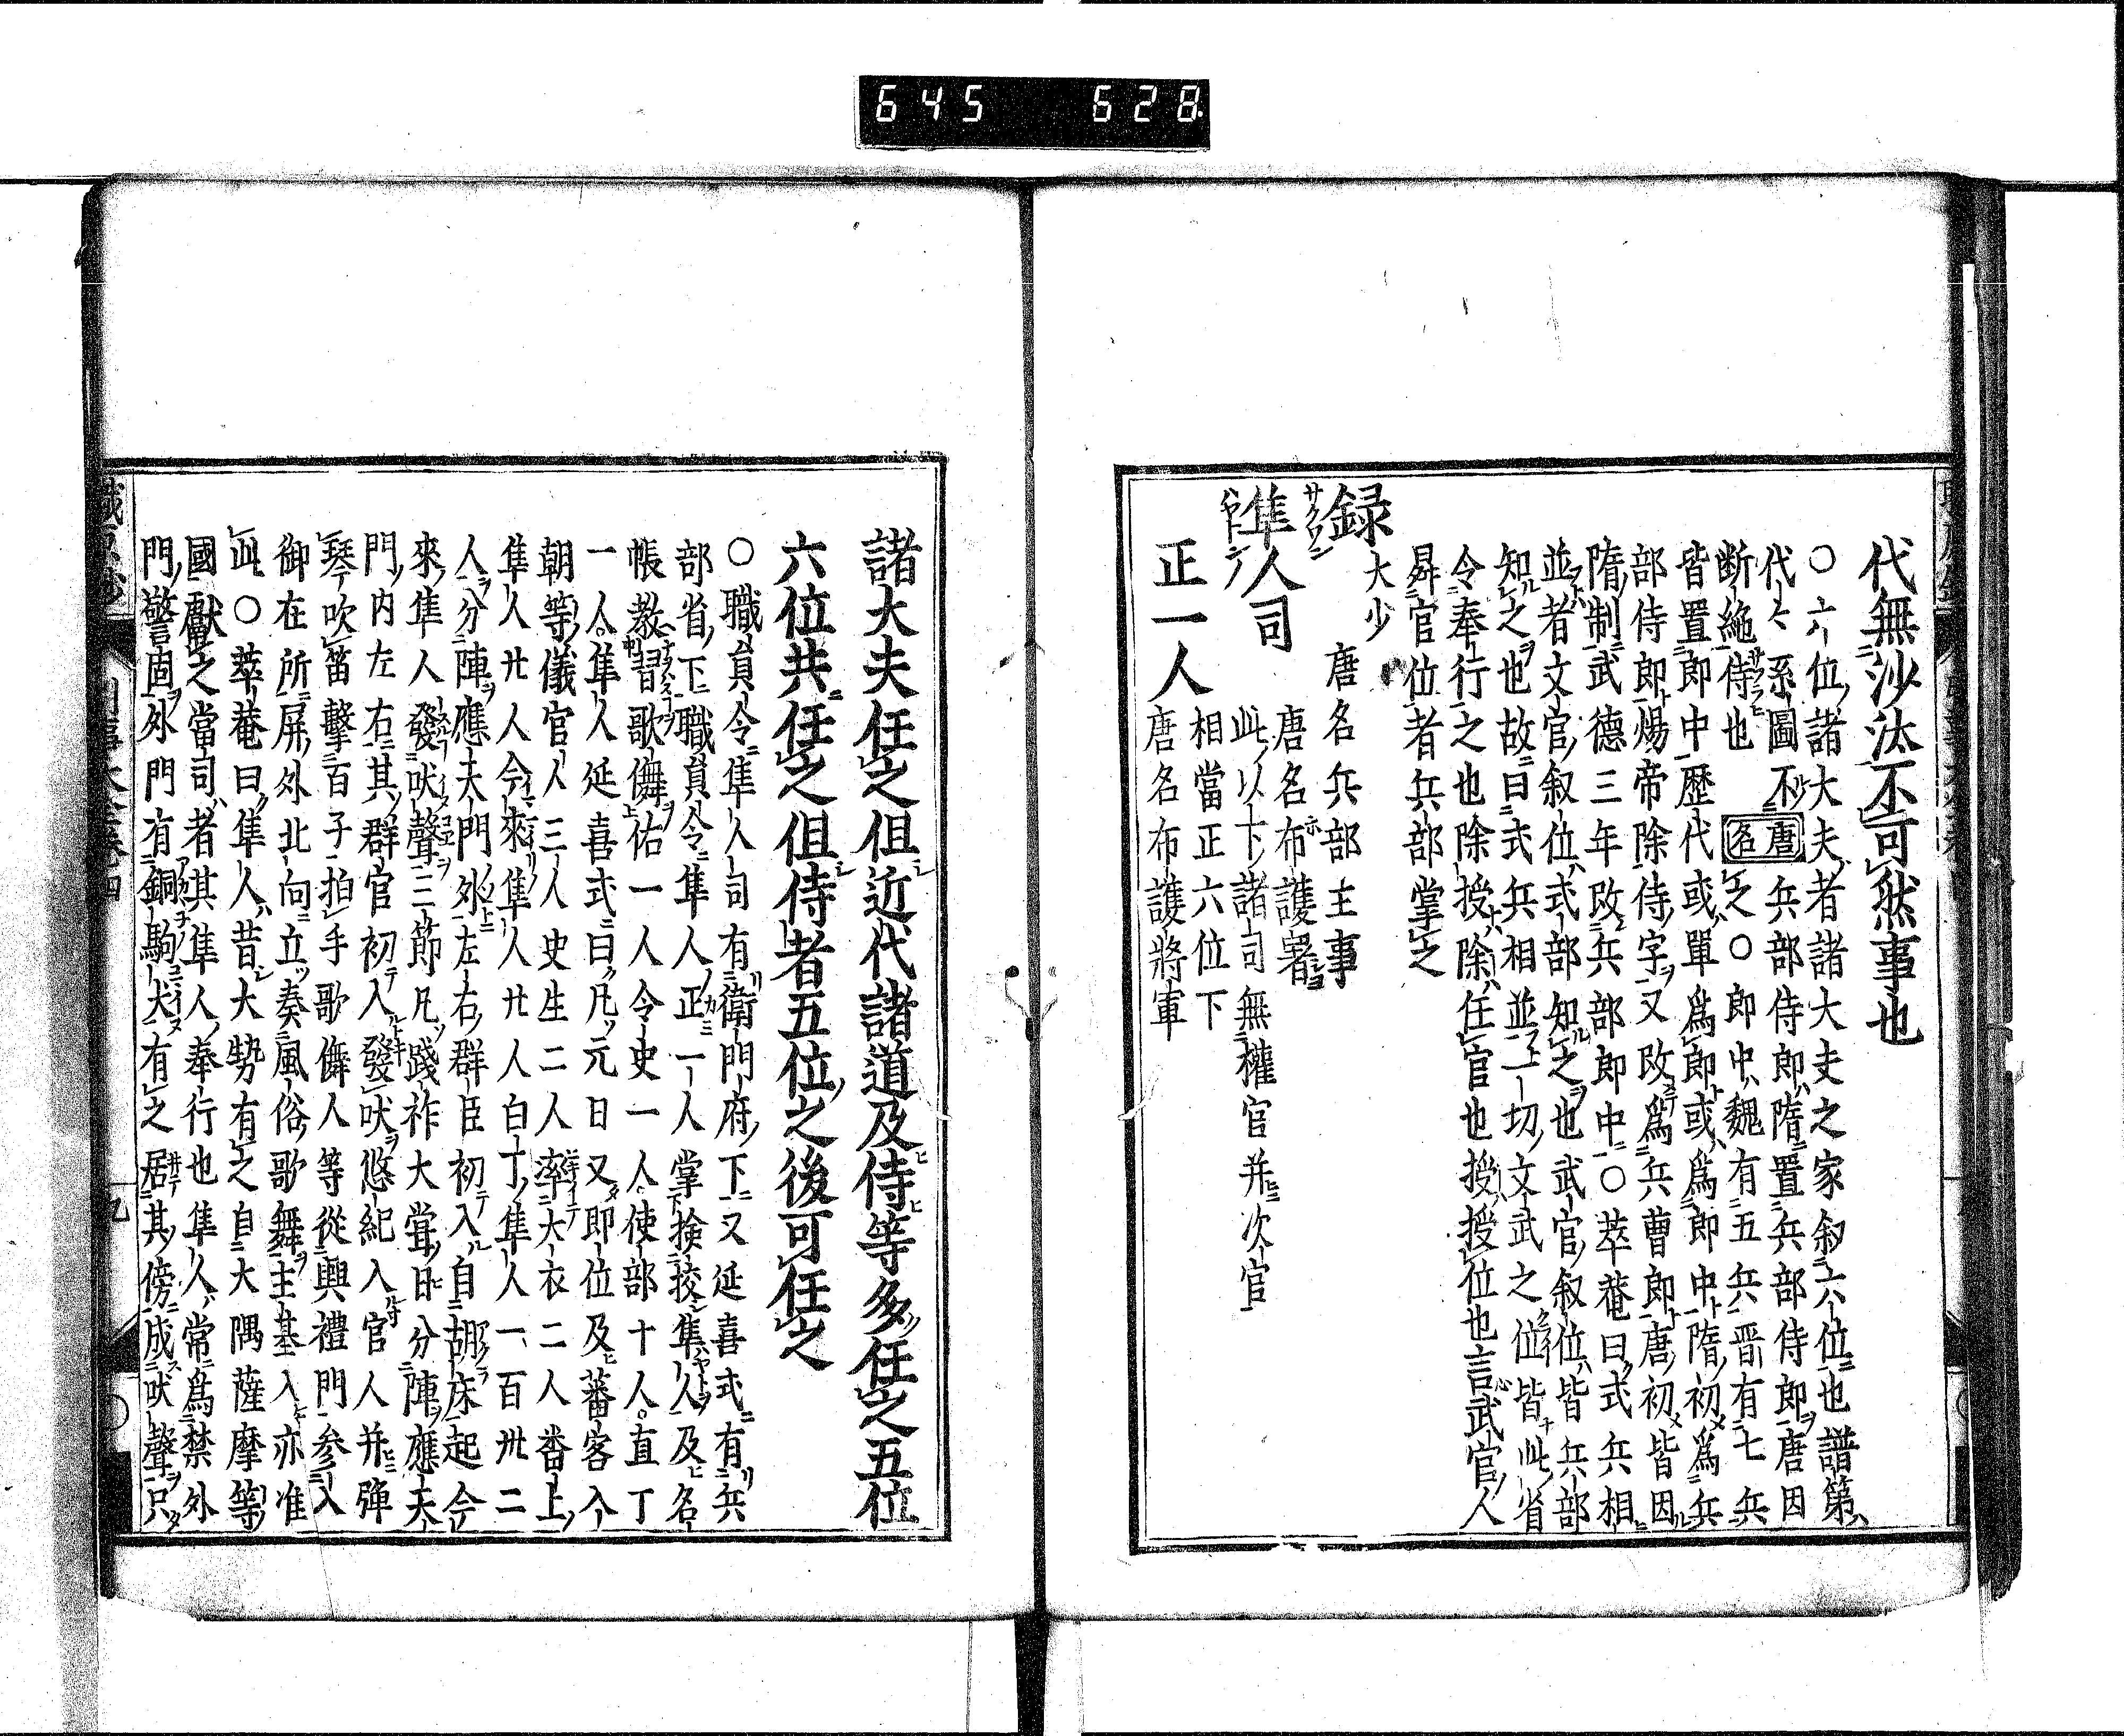 645 628
代無沙汰不可然事也
○六位諸大夫者諸大夫之家叙六位也譜第
代々系圖不断絶侍也
唐名 兵部侍郎隋置兵部侍郎唐因
之○郎中魏有五兵晋有七兵
皆置郎中歴代或單爲郎或爲郎中隋初爲兵
部侍郎煬帝除侍字又改爲兵曹郎唐初皆因
隋制武德三年改兵部郎中○萃菴曰式兵相
並者文官叙位式部知之也武官叙位皆兵部
知之也故曰式兵相並一切文武之位皆此省
令奉行之也除授除任官也授授位也言武官人
昇官位者兵部掌之
録 サクワン
大少
唐名兵部主事
隼人司 ハヤトノ
唐名布護署
此以下諸司無權官并次官
正一人
相當正六位下
唐名布護將軍
諸大夫任之但近代諸道及侍等多任之五位
六位共任之但侍者五位之後可任之
○職員令隼人司有衛門府下又延喜式有兵
部省下職員令隼人正一人掌撿挍隼人及名
帳教習歌儛佑一人令史一人使部十人直丁
一人隼人延喜式曰凡元日又即位及蕃客入
朝等儀官人三人史生二人率大衣二人番上
隼人廿人今來隼人廿人白丁隼人一百卅二
人分陣應天門外左右群臣初入自胡床起今
來隼人發吠聲三節凡踐祚大甞日分陣應天
門内左右其群官初入發吠悠紀入官人并彈
琴吹笛擊百子拍手歌儛人等從興禮門参入
御在所屏外北向立奏風俗歌舞主基入亦准
此○萃菴曰隼人昔大勢有之自大隅薩摩等
國獻之當司者其隼人奉行也隼人常爲禁外
門警固外門有銅駒犬有之居其傍成吠聲只